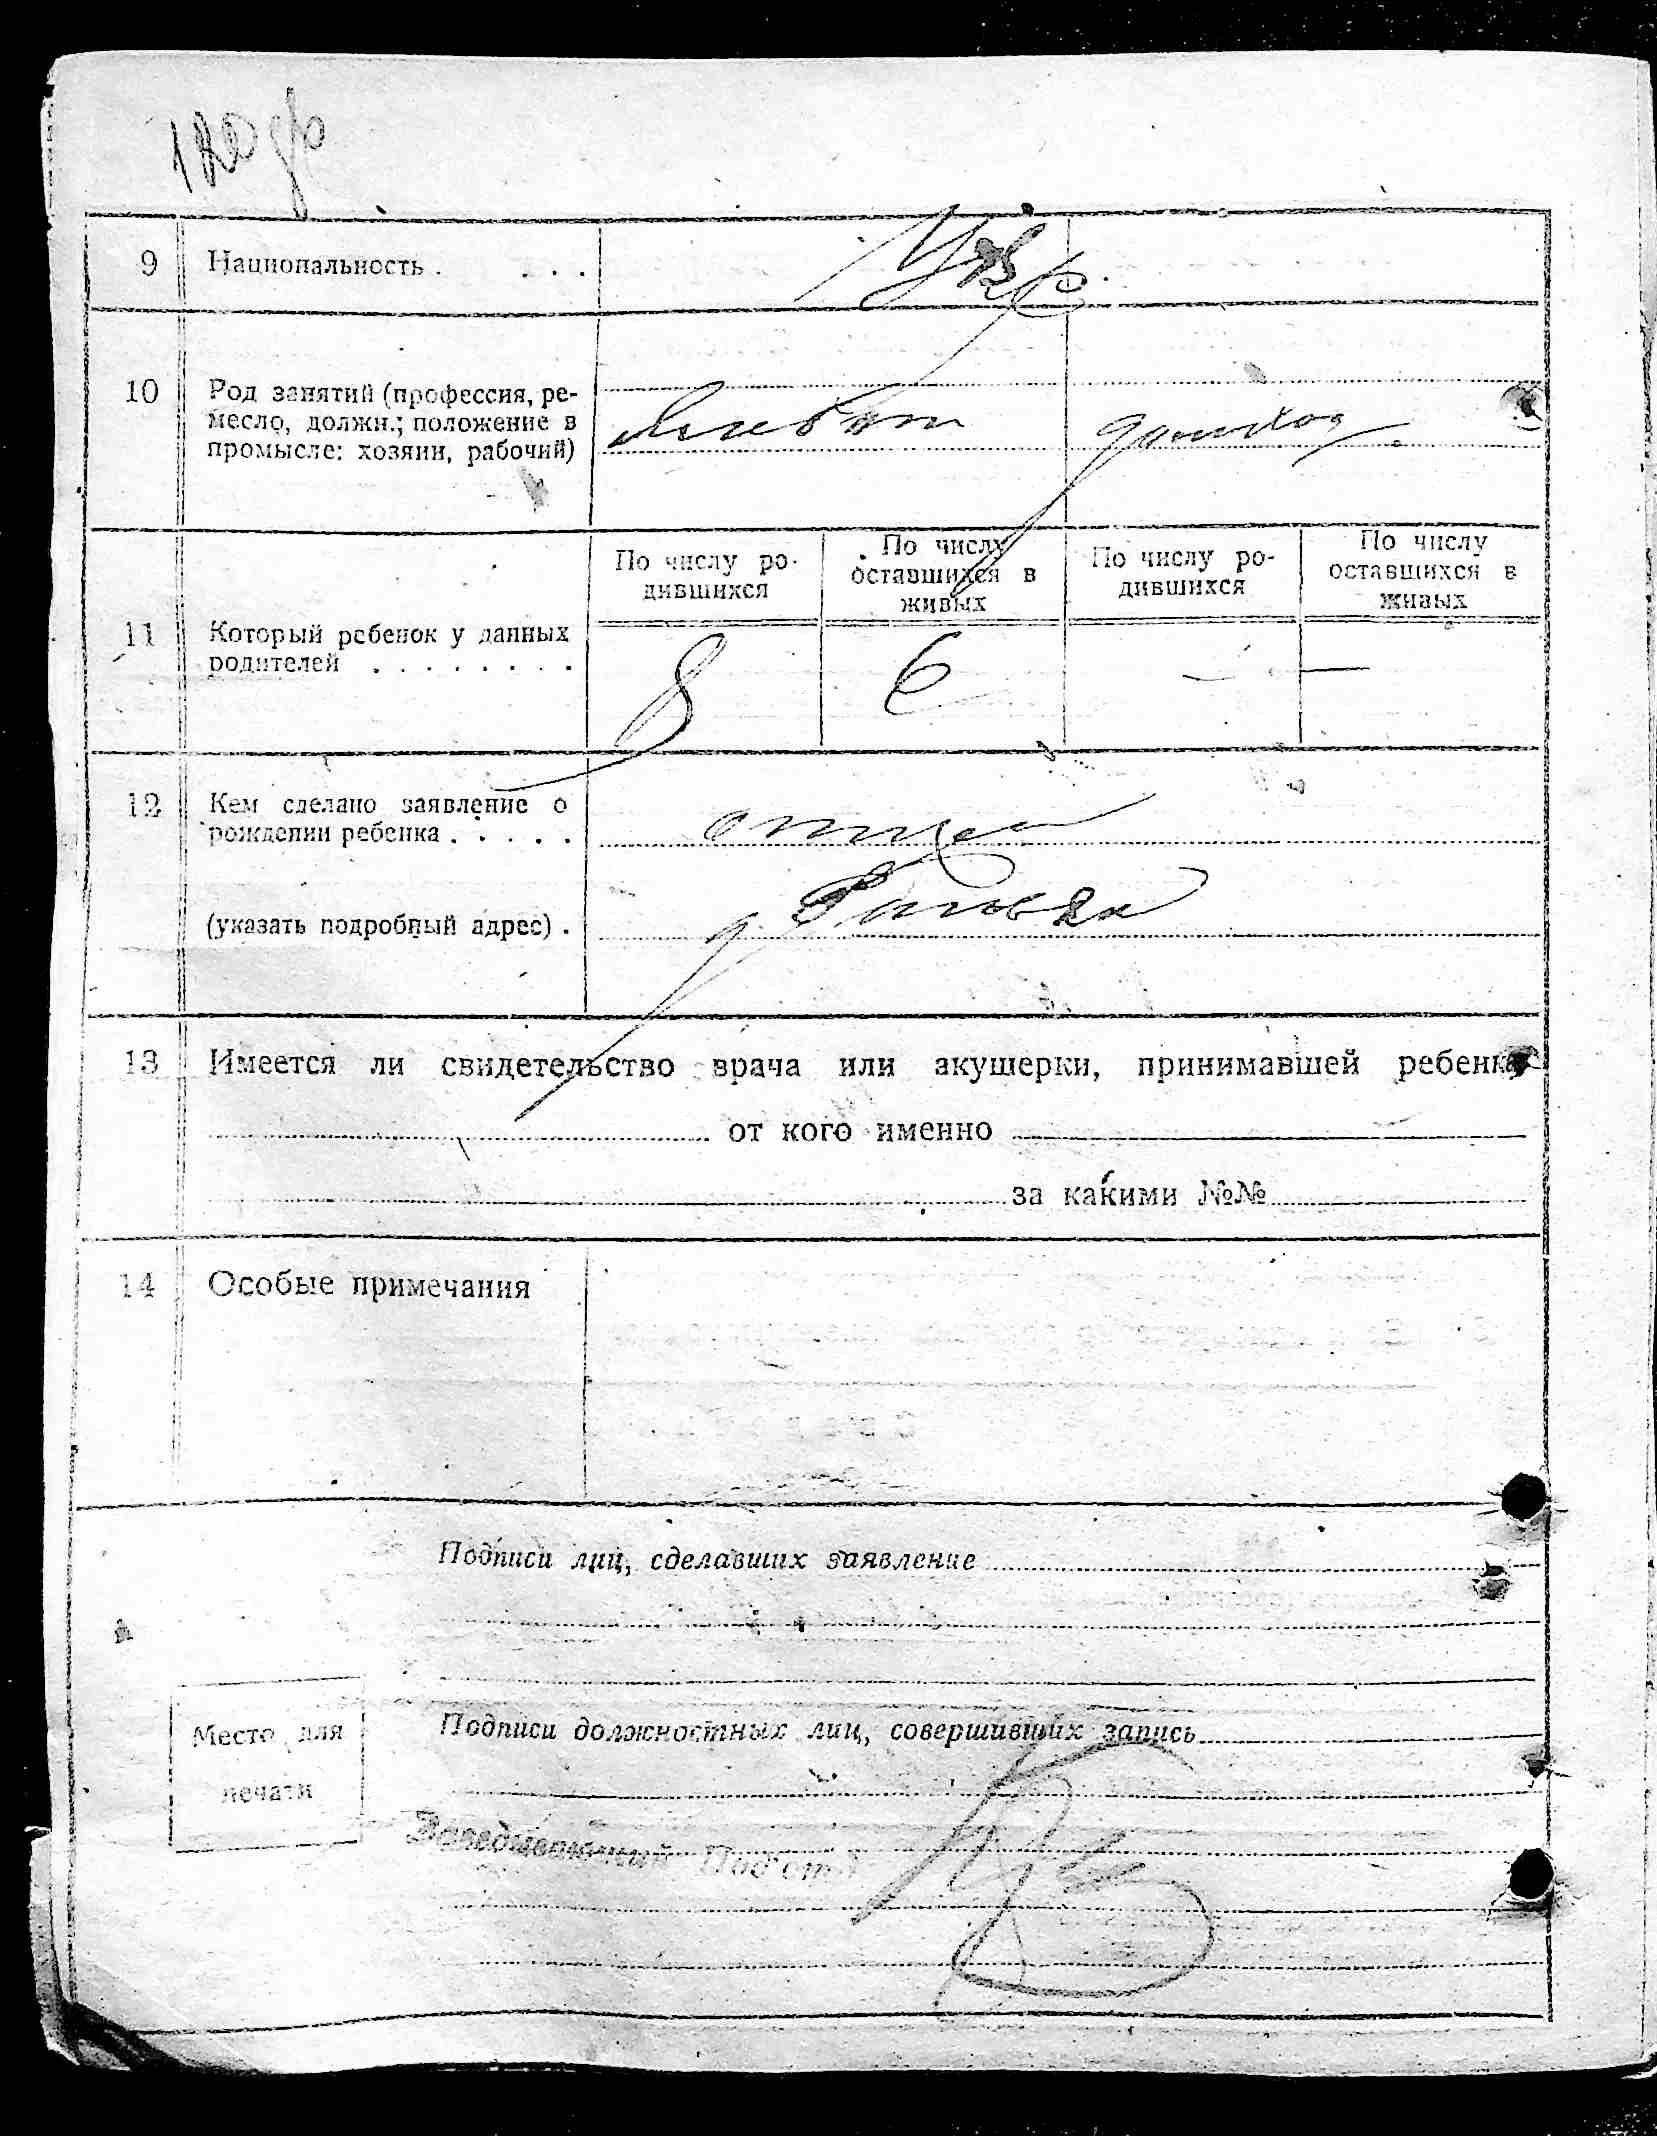 9 Национальность . . . . Укр.
10 Род занятий (профессия, ре-
месло, должн.; положение в
промысле: хозяин, рабочий)
хлебоп домохоз.
По числу ро-
дившихся
По числу
оставшихся в
живых
По числу ро-
дившихся
По числу
оставшихся в
живых
11 Который ребенок у данных
родителей . . . . . . . .
8 6 — —
12 Кем сделано заявление о
рождении ребенка . . . . .
отцем
(указать подробный адрес) .
13 Имеется ли свидетельство врача или акушерки, принимавшей ребенка
от кого именно
за какими №№
14 Особые примечания
Подписи лиц, сделавших заявление
Место для
печати
Подписи должностных лиц, совершивших запись
Заведывающий